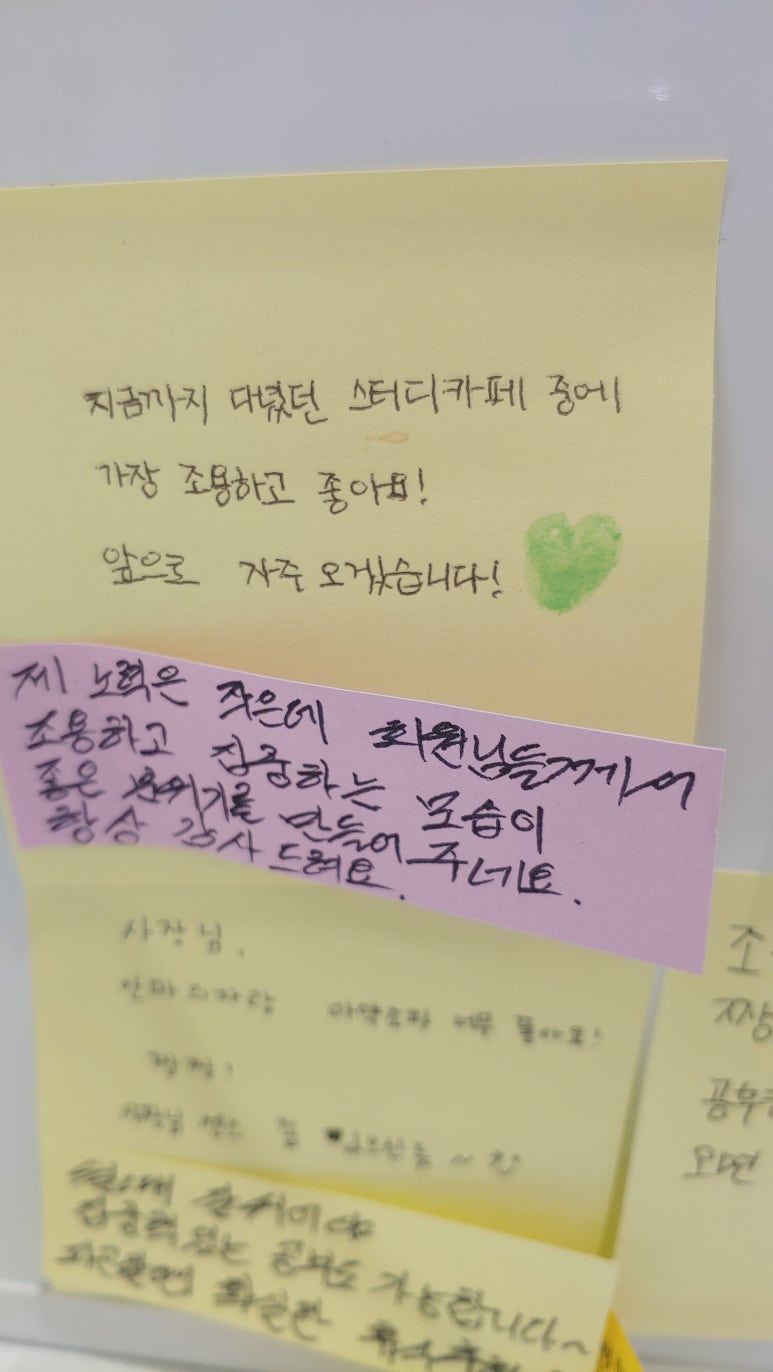 지금까지 다녔던 스터디카페 중에
가장 조용하고 좋아요!
앞으로 자주 오겠습니다!
제 노력은 작은데 회원님들께서
조용하고 집중하는 모습이
좋은 분위기를 만들어 주네요.
항상 감사 드려요.
사장님,
안마의자랑 너무 좋아요!
짱짱!
사장님
집중력있는 공부도 가능합니다~
피곤할땐
조
짱
공부
오면